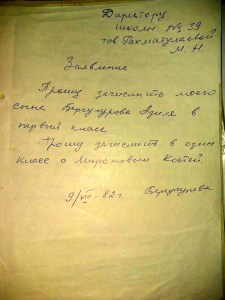 Директору
школы №3 39
тов Рахматулаевой
М. Н.
Заявление
Прошу зачислить моего
сына Бергунурова Адиля в
первый класс
Прошу зачислить в один
класс с Мироновым Костей
9/VII-82 г.